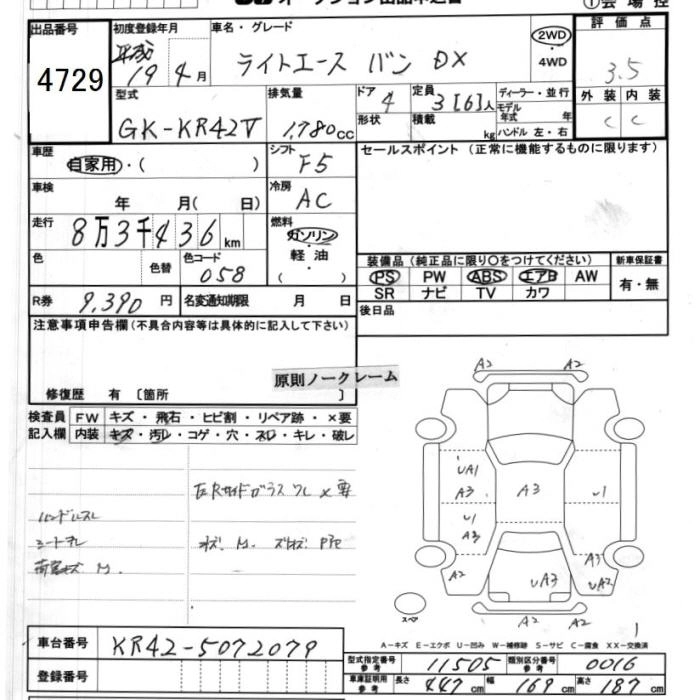 ①会場控
出品番号
4729
初度登録年月
平成 19年 4月
車名・グレード
ライトエース バン DX
2WD
4WD
評価点
3.5
外装 内装
C C
型式
GK-KR42V
排気量
1,780cc
ドア
4
形状
定員
3[6]人
積載 kg
ディーラー・並行
モデル年式 年
ハンドル 左・右
車歴
自家用・( )
シフト
F5
セールスポイント (正常に機能するものに限ります)
車検
年 月( 日)
冷房
AC
走行
8万3千436km
燃料
ガソリン
軽油
( )
色
色替
色コード
058
R券
9,390円
名変通知期限 月 日
装備品(純正品に限り○をつけてください)
新車保証書
PS PW ABS エアB AW
SR ナビ TV カワ
有・無
後日品
注意事項申告欄(不具合内容等は具体的に記入して下さい)
原則ノークレーム
修復歴 有 [箇所 ]
検査員記入欄
FW キズ・飛石・ヒビ割・リペア跡・×要
内装 キズ・汚レ・コゲ・穴・スレ・キレ・破レ
ハンドルスレ
シートスレ
M.
A2 A2
UA1
A3
U1
A3
A3
U1
A3
A2
UA3
UA2
A2 A2
スペア
1
A-キズ E-エクボ U-凹み W-補修跡 S-サビ C-腐食 XX-交換済
車台番号
KR42-5072079
登録番号
型式指定番号 参考
11505
類別区分番号 参考
0016
車庫証明用 参考
長さ 447cm 幅 169cm 高さ 187cm